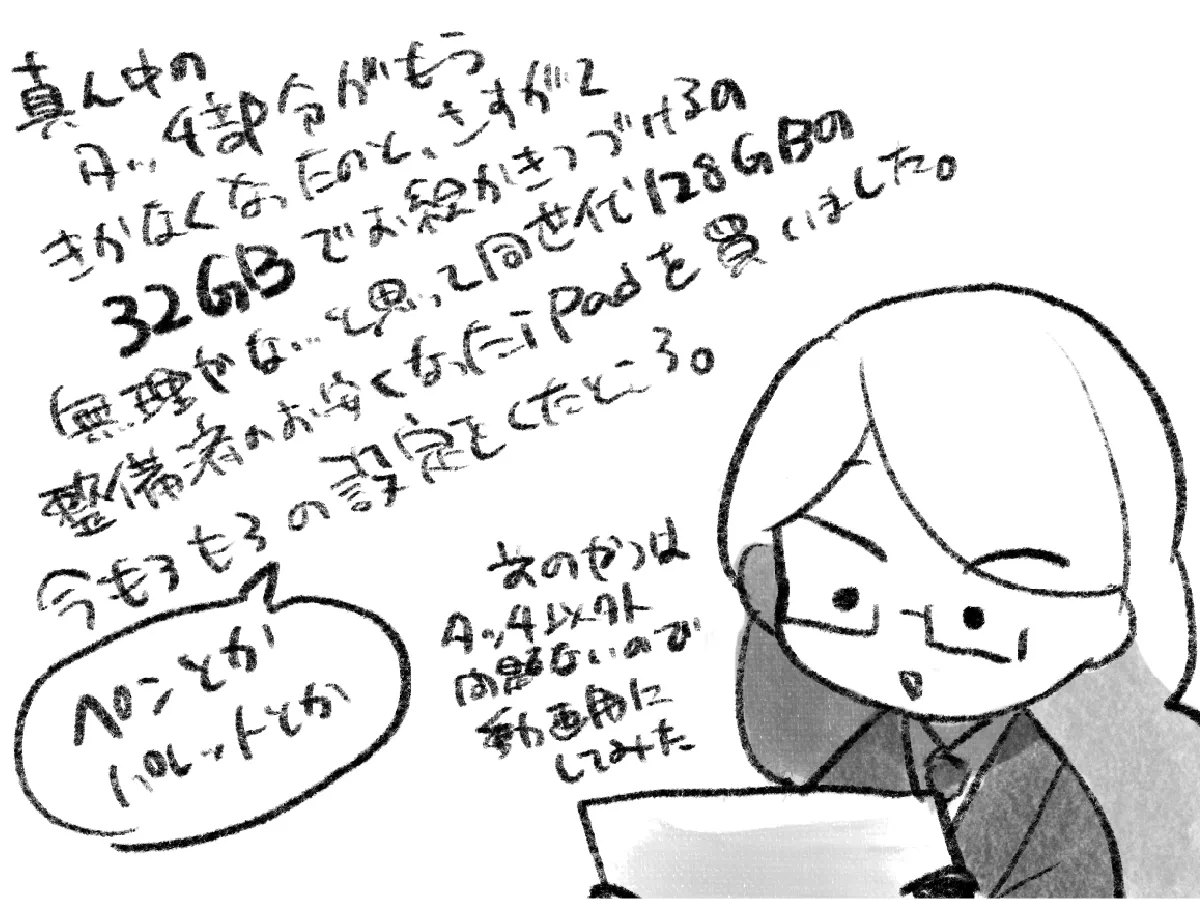 真ん中の
タッチ部分がもう
きかなくなったのと、さすがに
32GBでお絵かきつづけるの
無理かな…と思って同世代128GBの
整備済のお安くなったiPadを買いました。
今もろもろの設定をしたところ。
ペンとか
パレットとか
次のやつは
タッチ以外
問題ないので
動画用に
してみた